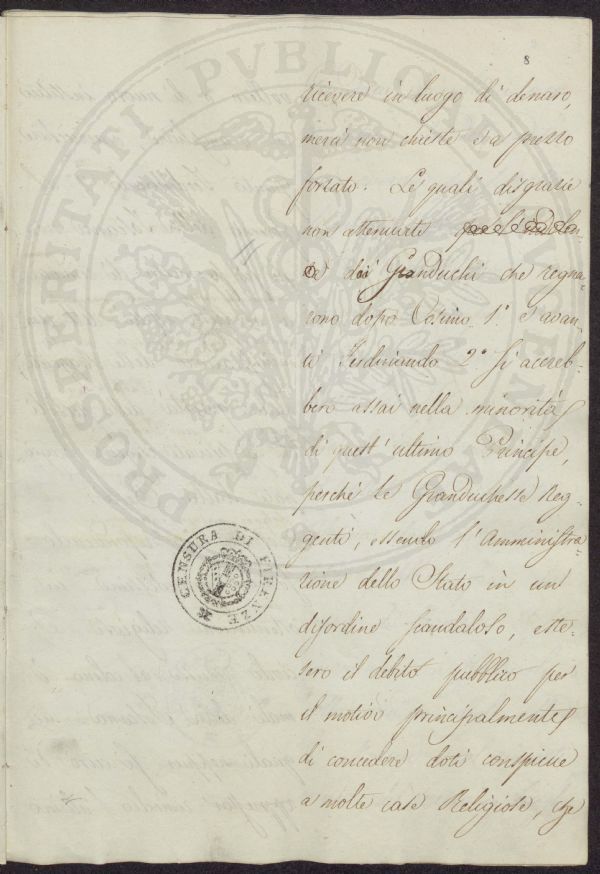 8
ricevere in luogo di denaro,
merci non chieste e a prezzo
forzato. Le quali disgrazie
non attenuate
dei Granduchi che regna-
rono dopo Cosimo 1.° e avan-
ti Ferdinando 2.° si acereb-
bero assai nella minorità
di quest' ultimo Principe,
perchè le Granduchesse Reg-
genti, essendo l'Amministra-
zione dello Stato in un
disordine scandaloso, este-
sero il debito pubblico per
il motivo principalmente
di concedere doti conspicue
a molte case Religiose, che
CENSURA DI FIRENZE
PROSPERITATI PVBLICAE